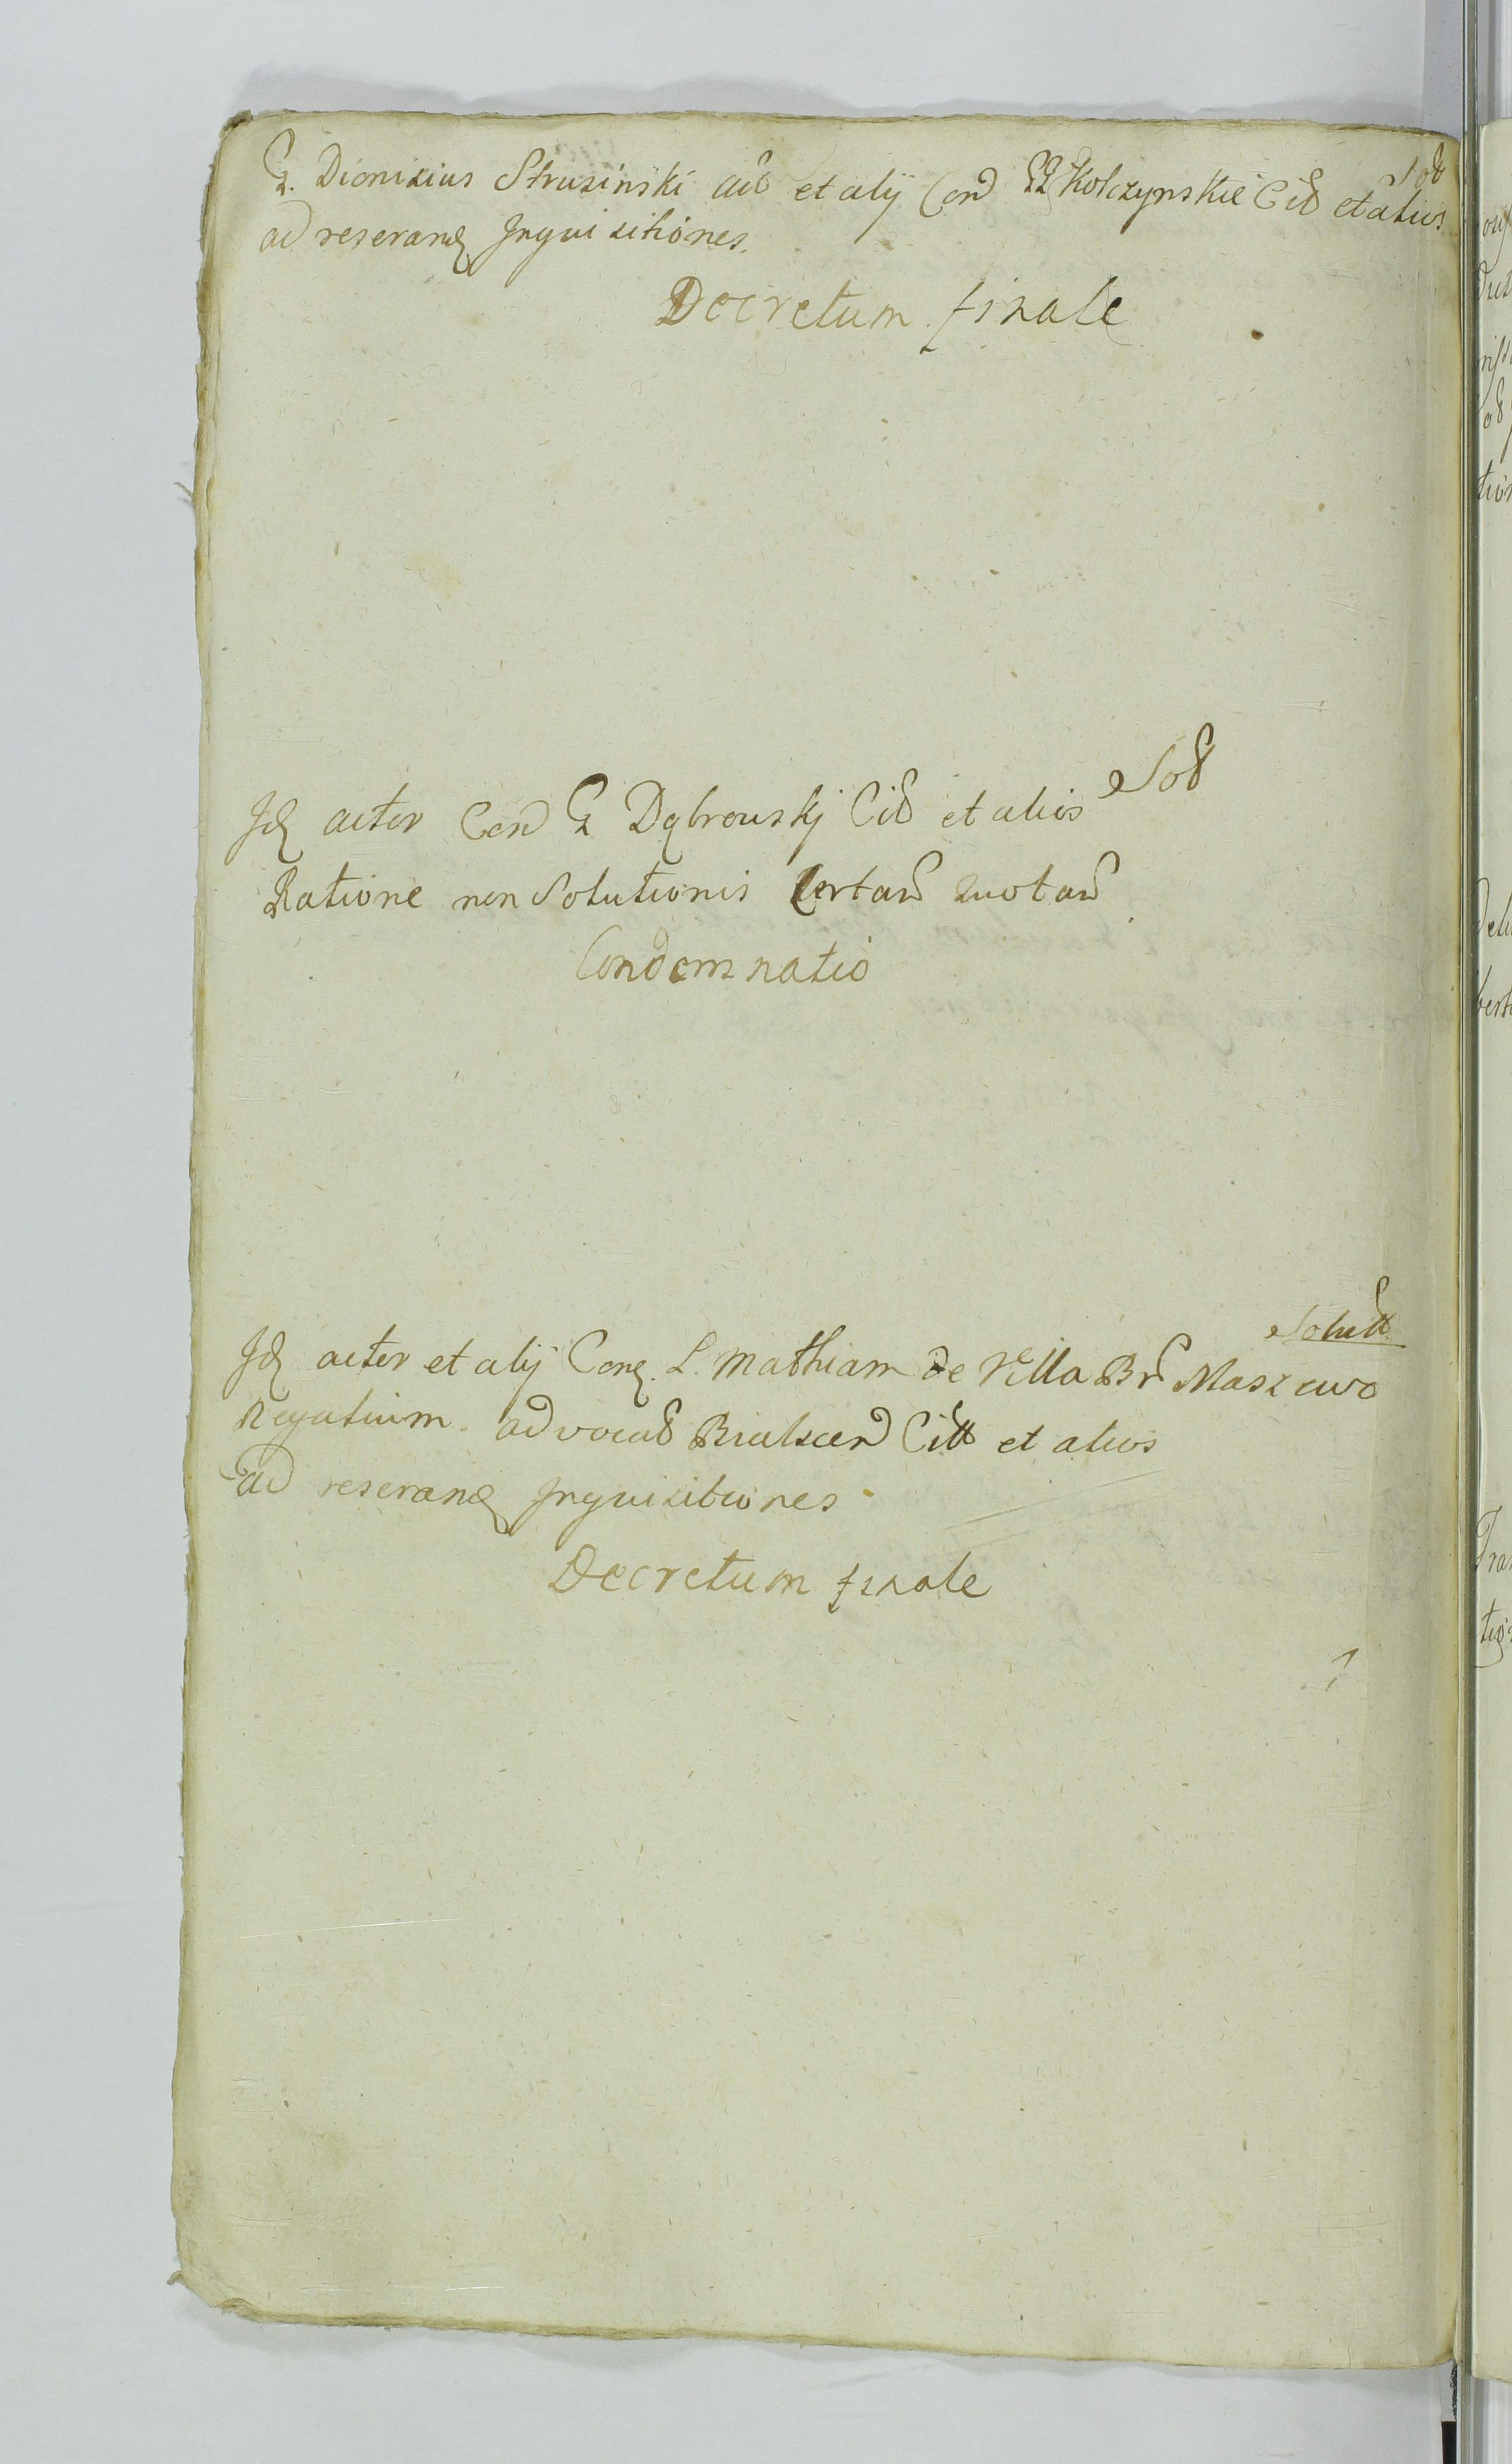 G. Dionisius Strusinski act et alij Con GG Kolczynskie Cit et alios Solt
ad reserand Inquisitiones.
Decretum finale
Id actor Con G Dąbrowskj Cit et alios Solt
Ratione non Solutionis Certar quotar
Condemnatio
Id actor et alij Con L. Mathiam de Villa Br Maszewo Solutt
advocat Citt et alios
ad reserand Inquisitiones
Decretum finale